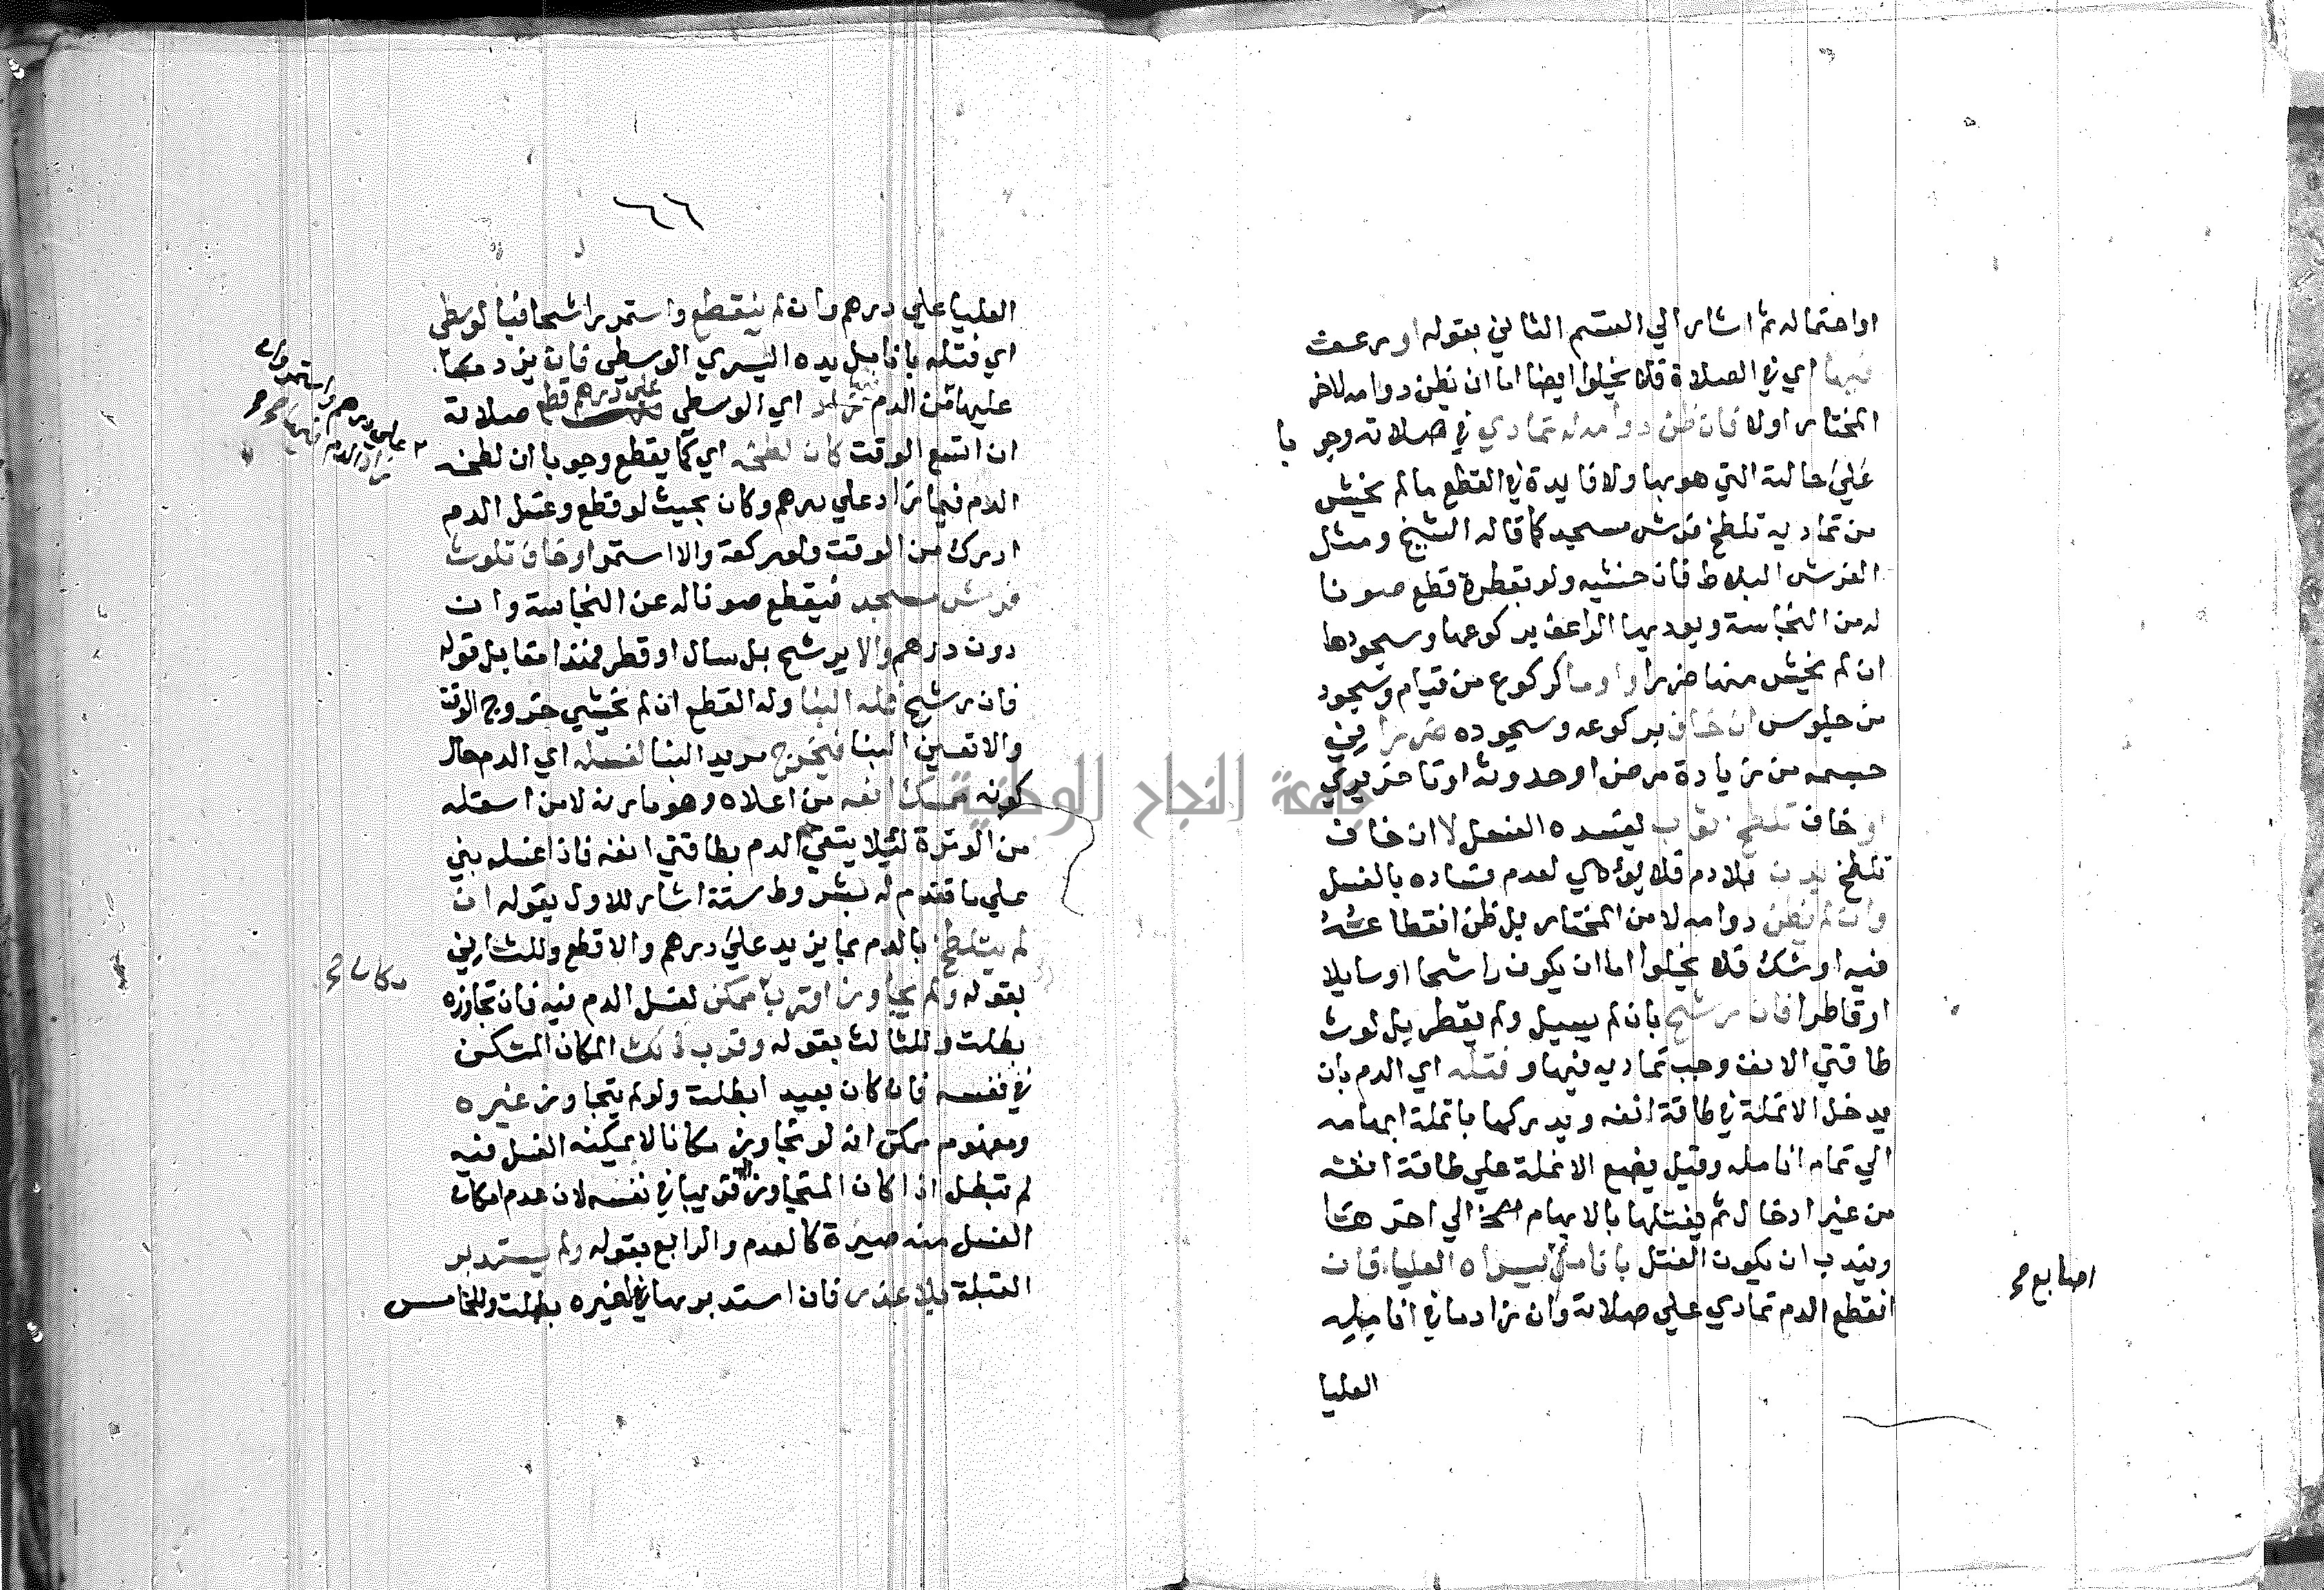 او احتماله ثم اشار الي القسم الثاني بقوله او رعف
فيها اي في الصلاة فلا يخلوا ايضا اما ان يظن دوامه لاخر
المختار اولا فان ظن دوامه له تمادي في صلاته وجو با
علي حالته التي هو بها ولا فايدة في القطع ما لم يخش
من تماديه تلطخ فرش مسجد كما قاله الشيخ ومثل
الفرش البلاط فان خشيه ولو بقطرة قطع صونا
له من النجاسة ويومي لها الراعف بركوعها وسجودها
ان لم يخش منها ضررا واومأ لركوع من قيام وسجود
من جلوس ان خاف بركوعه وسجوده ضررا في
جسمه من زيادة مرض او حدوثه او تاخر برء
او خاف تلطخ ثوب يفسده الغسل لا ان خاف
تلطخ بدن فلا دم فلا يومي لعدم فساده بالغسل
وان لم يظن دوامه لاخر المختار بل ظن انقطاعه
فيه او شك فلا يخلوا اما ان يكون راشحا او سايلا
او قاطرا فان رشح بان لم يسيل ولم يقطر بل لوث
طاقتي الانف وجب تماديه فيها وفتله اي الدم بان
يدخل الانملة في طاقة انفه ويديرها بانملة ابهامه
الي تمام انامله وقيل يضع الانملة علي طاقة انفه
من غير ادخال ثم يفتلها بالابهام الي اخرها
ويندب ان يكون الفتل بانامل يسراه العليا فان
انقطع الدم تمادي علي صلاته وان زاد ما في انامله
اصابع صح
العليا
٦٦
العليا علي درهم وان لم ينقطع واستمر راشحا فبالوسطي
اي فتله بانامل يده اليسري الوسطي فان يزد ما
عليها من الدم اي الوسطي علي درهم قطع صلاته
علي درهم واستمر وان
زاد الدم فيها صح
ان اتسع الوقت كان لطخه اي كما يقطع وجوبا ان لطخه
الدم فيما زاد علي درهم وكان بحيث لو قطع وغسل الدم
ادرك من الوقت ولو ركعة والا استمر او خاف تلوث
فرش مسجد فيقطع صونا له عن النجاسة وان
دون درهم والا يرشح بل سال او قطر فهذا مقابل قوله
فان رشح فله البنا وله القطع ان لم يخشي خروج الوقت
والا تعين البنا فيخرج مريد البنا لغسله اي الدم حال
كونه ممسك انفه من اعلاه وهو مارنه لا من اسفله
من الوترة لئلا يبقي الدم بطاقتي انفه فاذا غسله بني
علي ما تقدم له بشروط ستة اشار للاول بقوله ان
لم يتلطخ بالدم بما يزيد علي درهم والا قطع وللثاني
بقوله ولم يجاوز اقرب ممكن لغسل الدم فيه فان تجاوزه
مكان صح
بطلت وللثالث بقوله وقرب ذلك المكان الممكن
في نفسه فان كان بعيد ابطلت ولو لم يتجاوز غيره
ومفهوم ممكن انه لو تجاوز مكانا لا يمكنه الغسل فيه
لم تبطل اذا كان المتجاوز اليه قريبا في نفسه لان عدم امكان
الغسل منه صيره كالعدم والرابع بقوله ولم يستدبر
القبلة بلا عذر فان استدبرها لغيره بطلت وللخامس
جامعة النجاح الوطنية